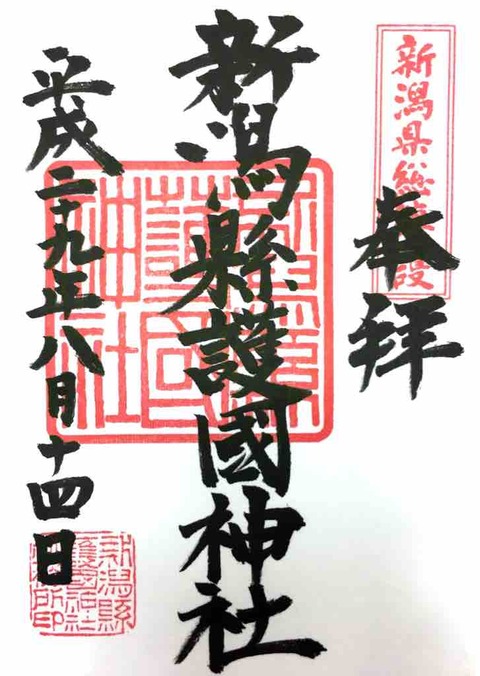 奉拝
新潟県総鎮守
新潟縣護國神社
平成二十九年八月十四日
新潟縣護國神社
新潟縣護國神社社務所印